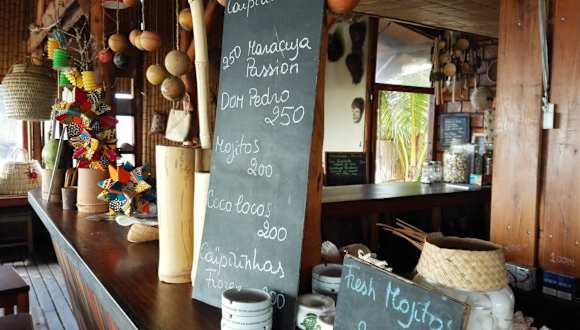 250 Maracuja
Passion
Dom Pedro
250
Mojitos
200
Coco locos
200
Caïpirinhas
200
Fresh Mojitos